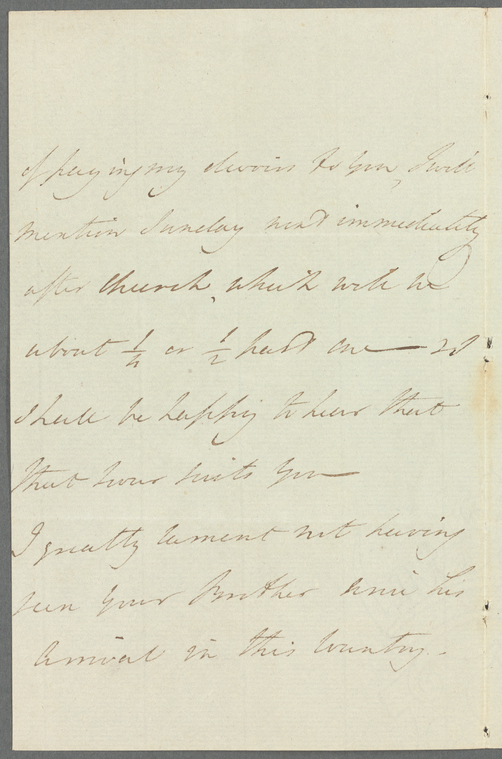 of paying my devoirs to you, I will
mention Sunday next immediately
after Church, which will be
about 1/4 or 1/2 past one — &
I shall be happy to hear that
that hour suits you —
I greatly lament not having
seen your Brother since his
arrival in this Country.